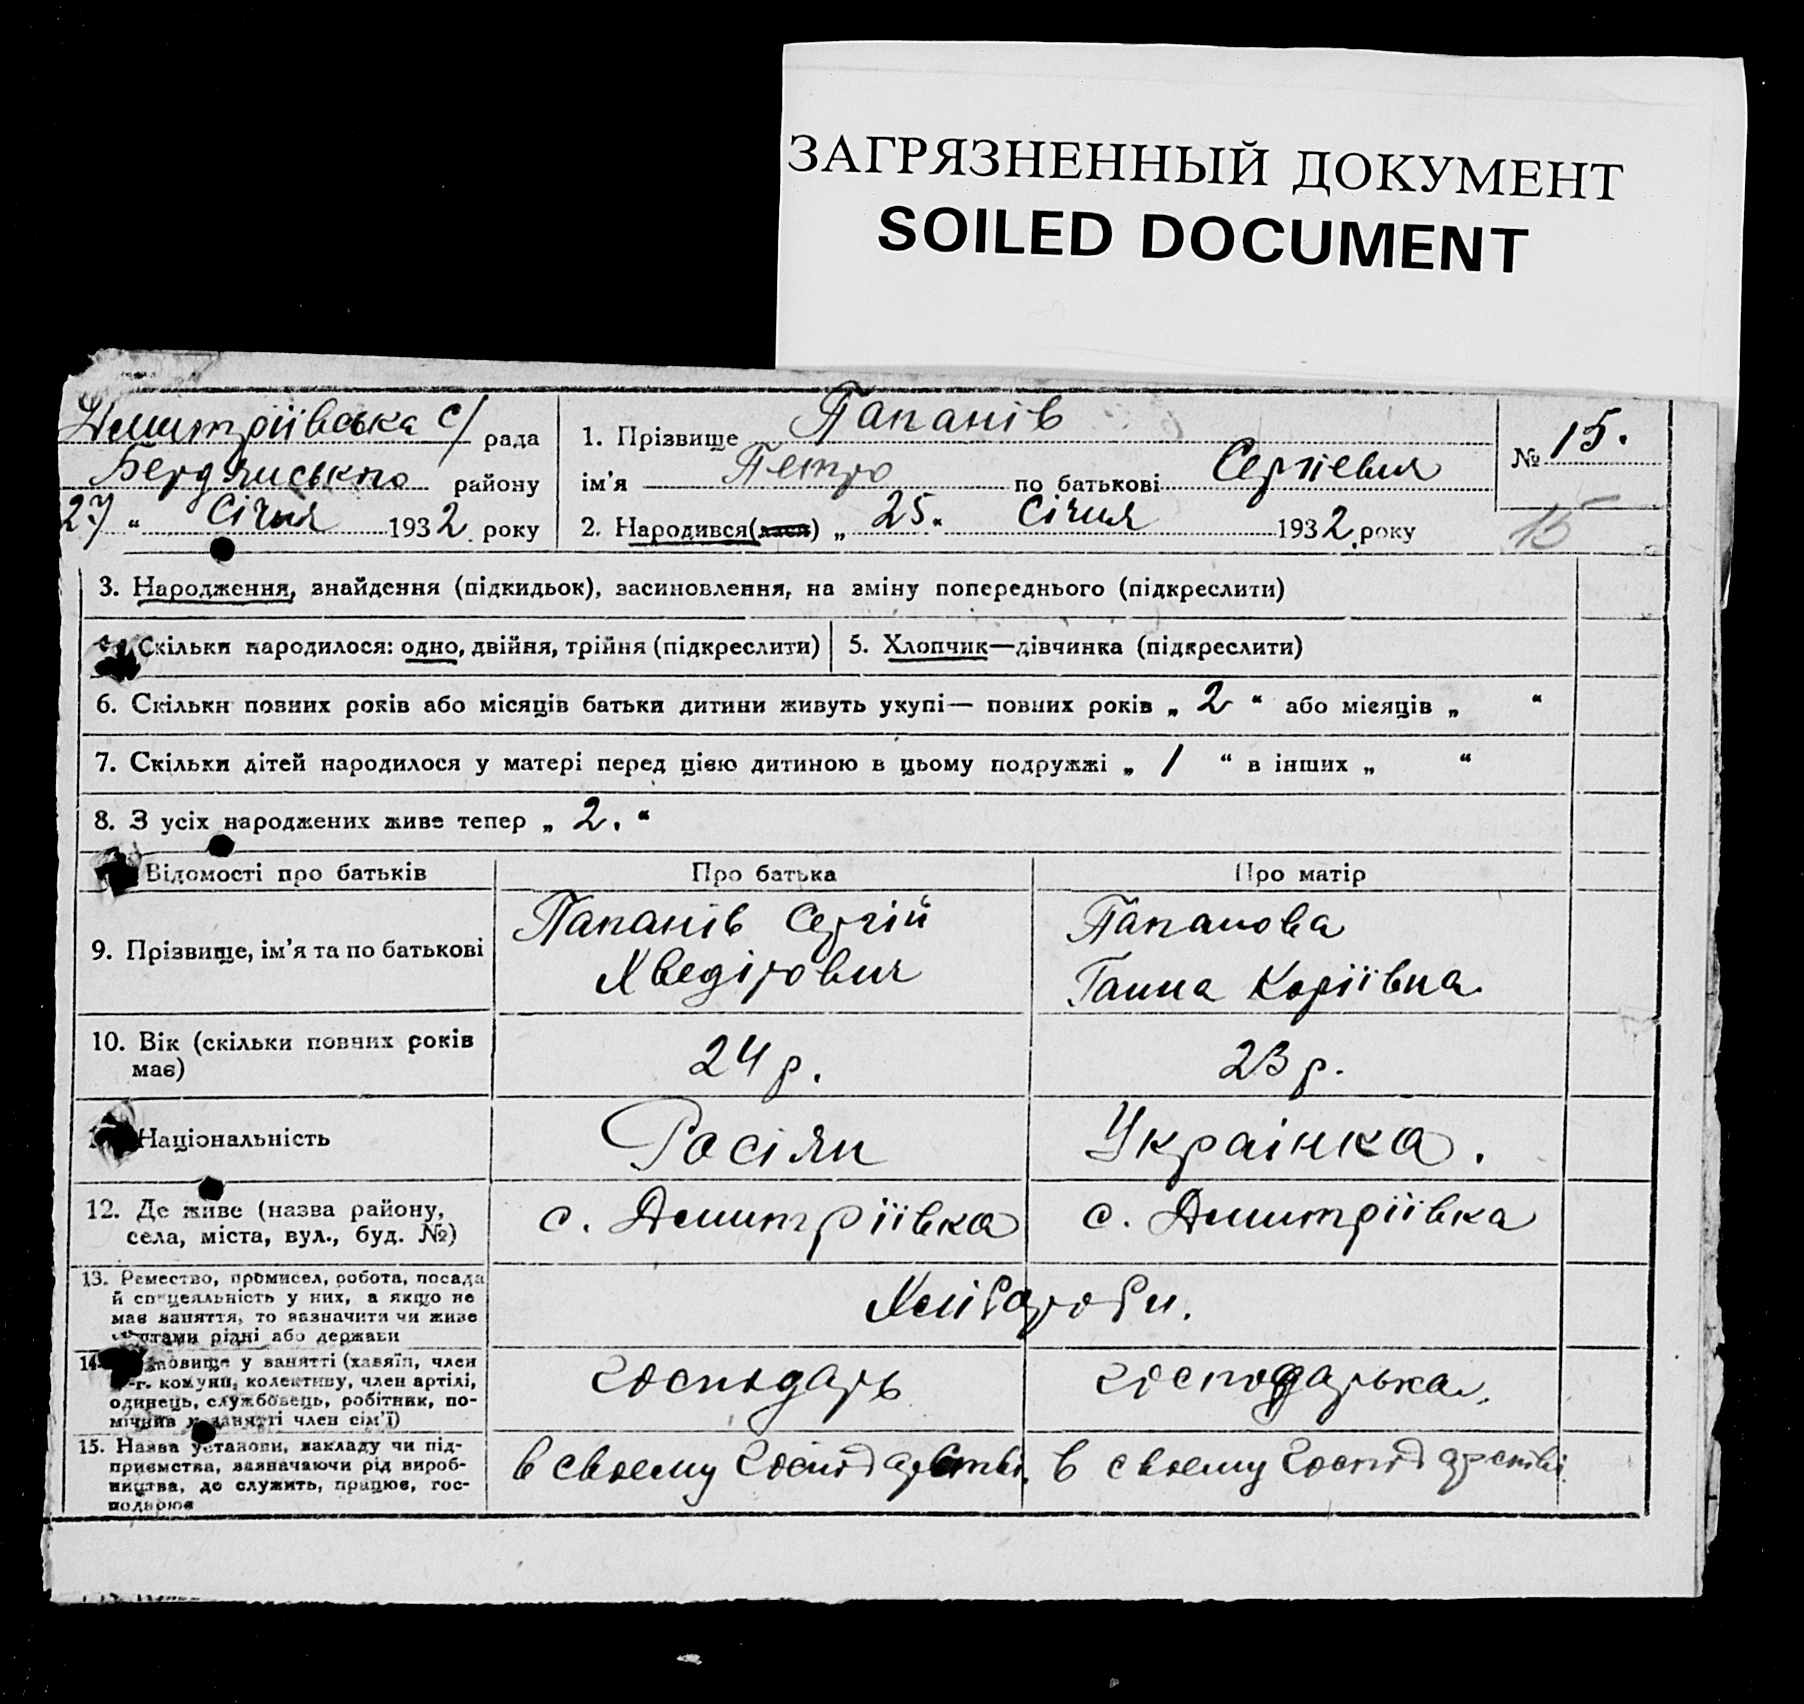 ЗАГРЯЗНЕННЫЙ ДОКУМЕНТ
SOILED DOCUMENT
Дмитріївська с/ рада
Бердянсько району
27 " Січня 1932 року
1. Прізвище Папанів
ім'я Петро по батькові Сергієвич
2. Народився(лась) „ 25 " Січня 1932 року
№ 15.
15
3. Народження, знайдення (підкидьок), засиновлення, на зміну попереднього (підкреслити)
Скільки народилося: одно, двійня, трійня (підкреслити)
5. Хлопчик—дівчинка (підкреслити)
6. Скільки повних років або місяців батьки дитини живуть укупі— повних років „ 2 " або місяців „ "
7. Скільки дітей народилося у матері перед цією дитиною в цьому подружжі „ 1 " в інших „ "
8. З усіх народжених живе тепер „ 2. "
Відомості про батьків
Про батька
Про матір
9. Прізвище, ім'я та по батькові
Папанів Сергій
Хведірович
Папанова
Ганна
10. Вік (скільки повних років
має)
24 р.
23 р.
Національність
Росіян
Українка.
12. Де живе (назва району,
села, міста, вул., буд. №)
с. Дмитріївка
с. Дмитріївка
13. Ремество, промисел, робота, посада
й спецеяльність у них, а якщо не
має заняття, то зазначити чи живе
коштами рідні або держави
Хлібороби.
14. Становище у занятті (хазяїн, член
с.-г. комуни, колективу, член артілі,
одинець, службовець, робітник, по-
мічник у занятті член сім'ї)
господарь
господарька.
15. Назва установи, закладу чи під-
приємства, зазначаючи рід вироб-
ництва, де служить, працює, гос-
подарює
в своему господарстві.
в своему господарстві.